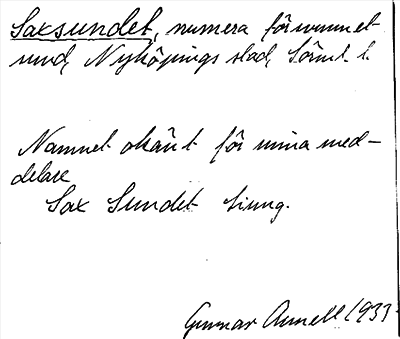 Saxsundet, numera försvunnet
sund, Nyköpings stad, Sörml. l.
Namnet okänt för mina med-
delare
Sax Sundet
Gunnar Annell 1933